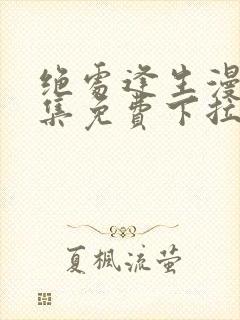 绝处逢生漫
集免费下拉
夏楓流萤